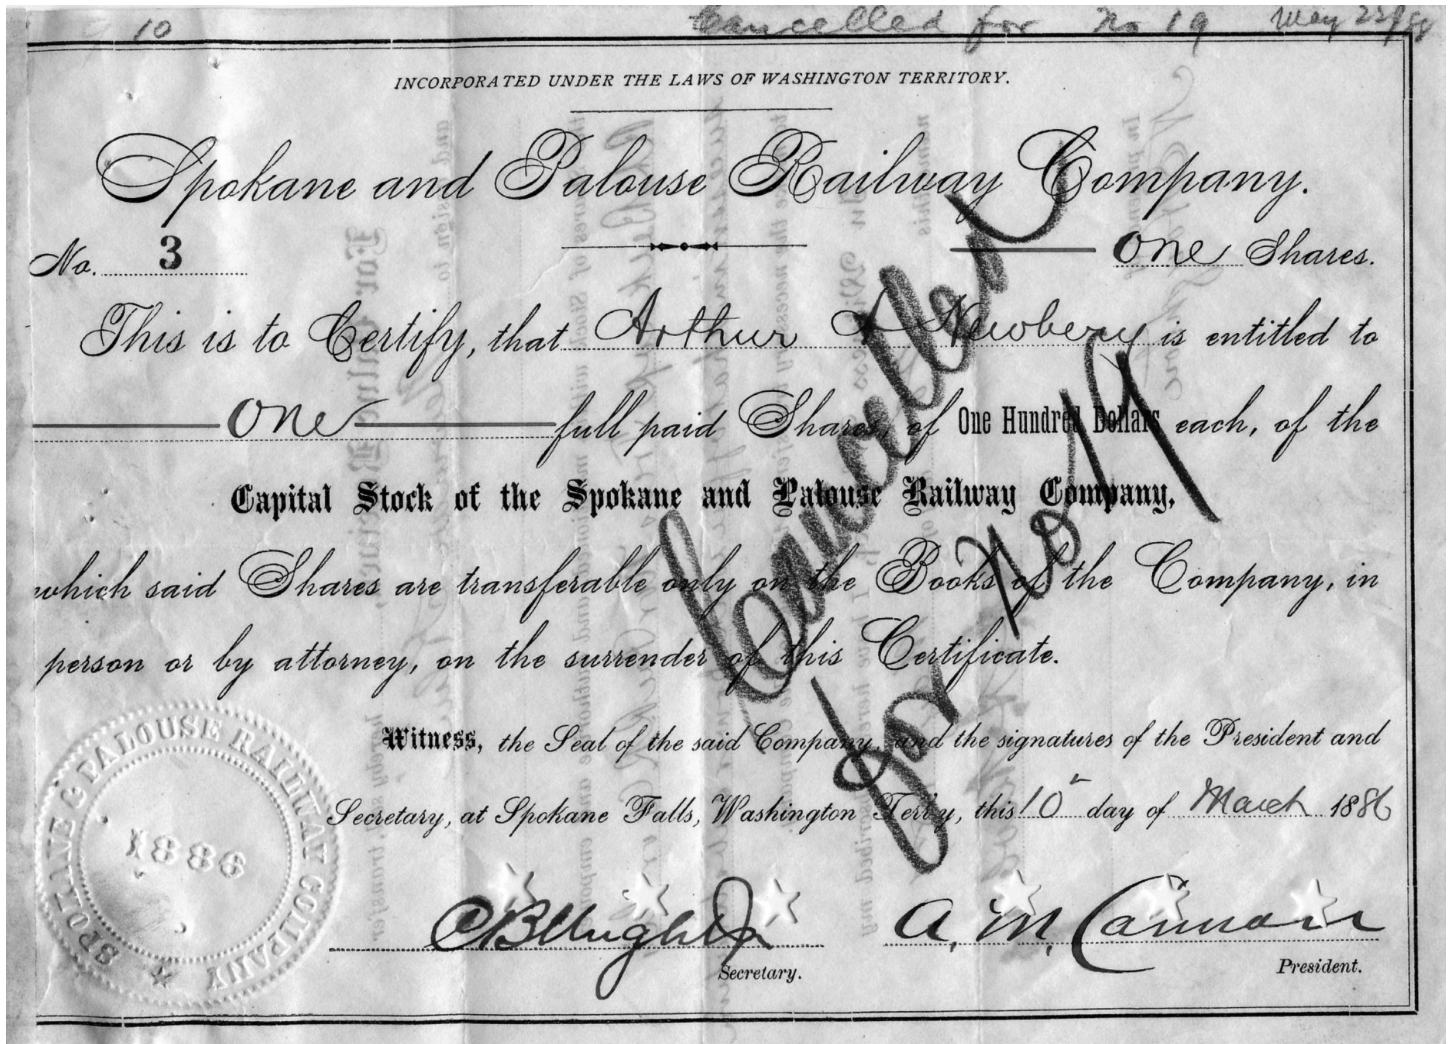 10 Cancelled for No 19 May 22/88
INCORPORATED UNDER THE LAWS OF WASHINGTON TERRITORY.
Spokane and Palouse Railway Company.
No. 3 One Shares.
This is to Certify, that Arthur Newbery is entitled to
One full paid Shares of One Hundred Dollars each, of the
Capital Stock of the Spokane and Palouse Railway Company,
which said Shares are transferable only on the Books of the Company, in
person or by attorney, on the surrender of this Certificate.
Cancelled
for No 19
Witness, the Seal of the said Company, and the signatures of the President and
Secretary, at Spokane Falls, Washington Terr'y, this 10 day of March 1886
SPOKANE & PALOUSE RAILWAY COMPANY
1886
A. M. Cannon
Secretary. President.